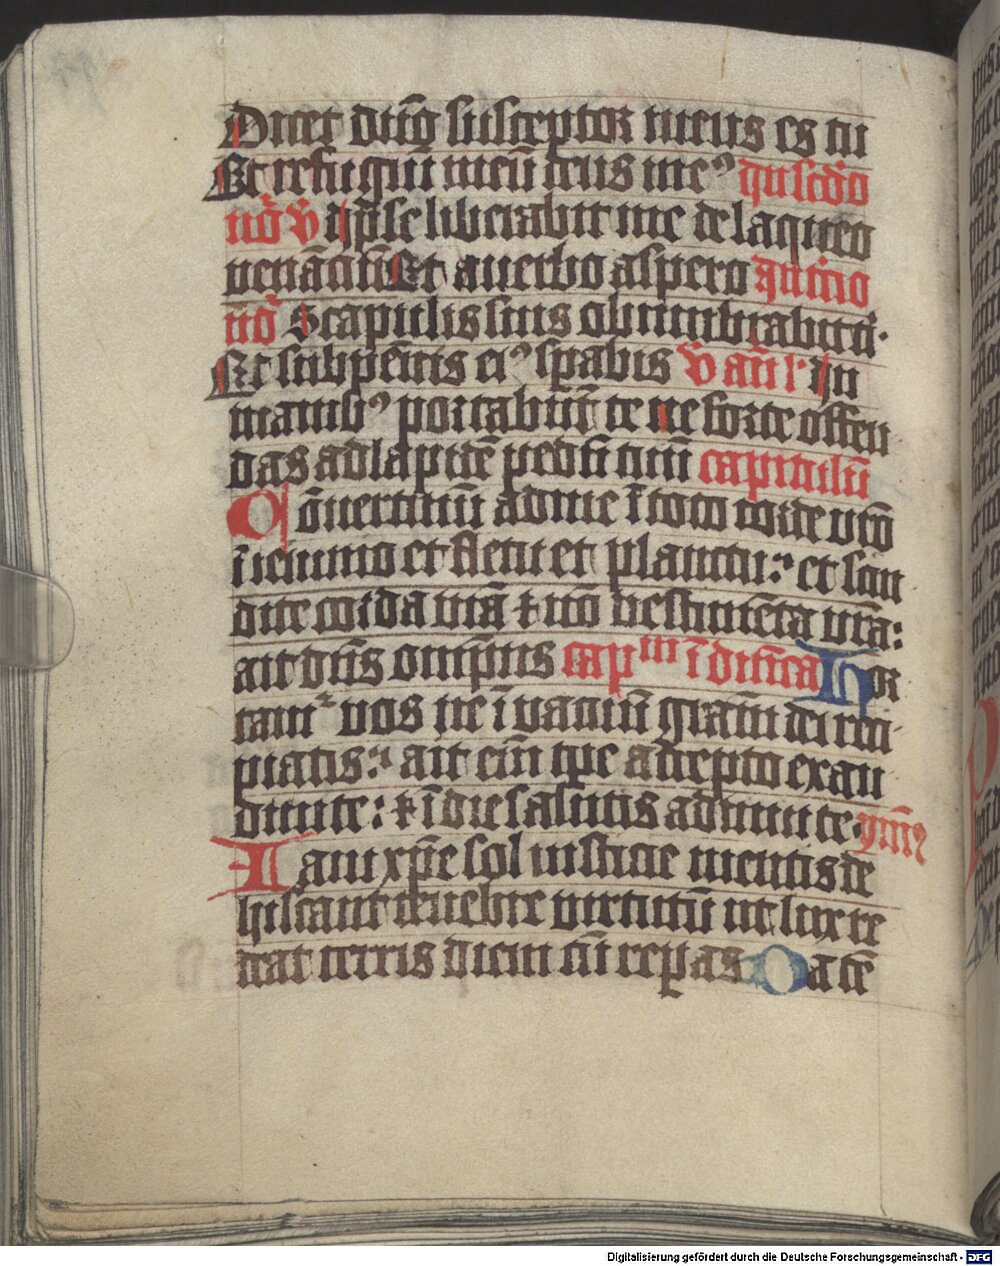 Dicet dūo susceptor meus es tu
Et refugiū meū deus meꝰ In scdo
no᷑ v᷑ Ip̄se liberabit me de laqueo
venātiū Et a verbo aspero In t'cio
no᷑ Scapulis suis obumbrabit t'
Et sub pennis eiꝰ spabis v᷑ an̄ l' In
manibꝰ portabūt te ne forte offen
das ad lapidē pedē tuū capitulū
Cōuertimī ad me ī toto corde vr̄o
ī ieiunio et fletu et planctu: et scin
dite corda vr̄a ⁊ nō vestimēta vr̄a:
ait dn̄s omp̄ns capm ī dn̄ica Hor
tamᷣ vos ne ī vanuū gr̄am dei reci
piatis: ait em̄ tpe accepto exau
diui te: ⁊ ī die salutis adiuui te ymꝰ
Iam xp̄e sol iusticie mentis de
hiscant tenebre virtutū ut lux re
deat terris diem cū reparas Da tē
Digitalisierung gefördert durch die Deutsche Forschungsgemeinschaft - DFG